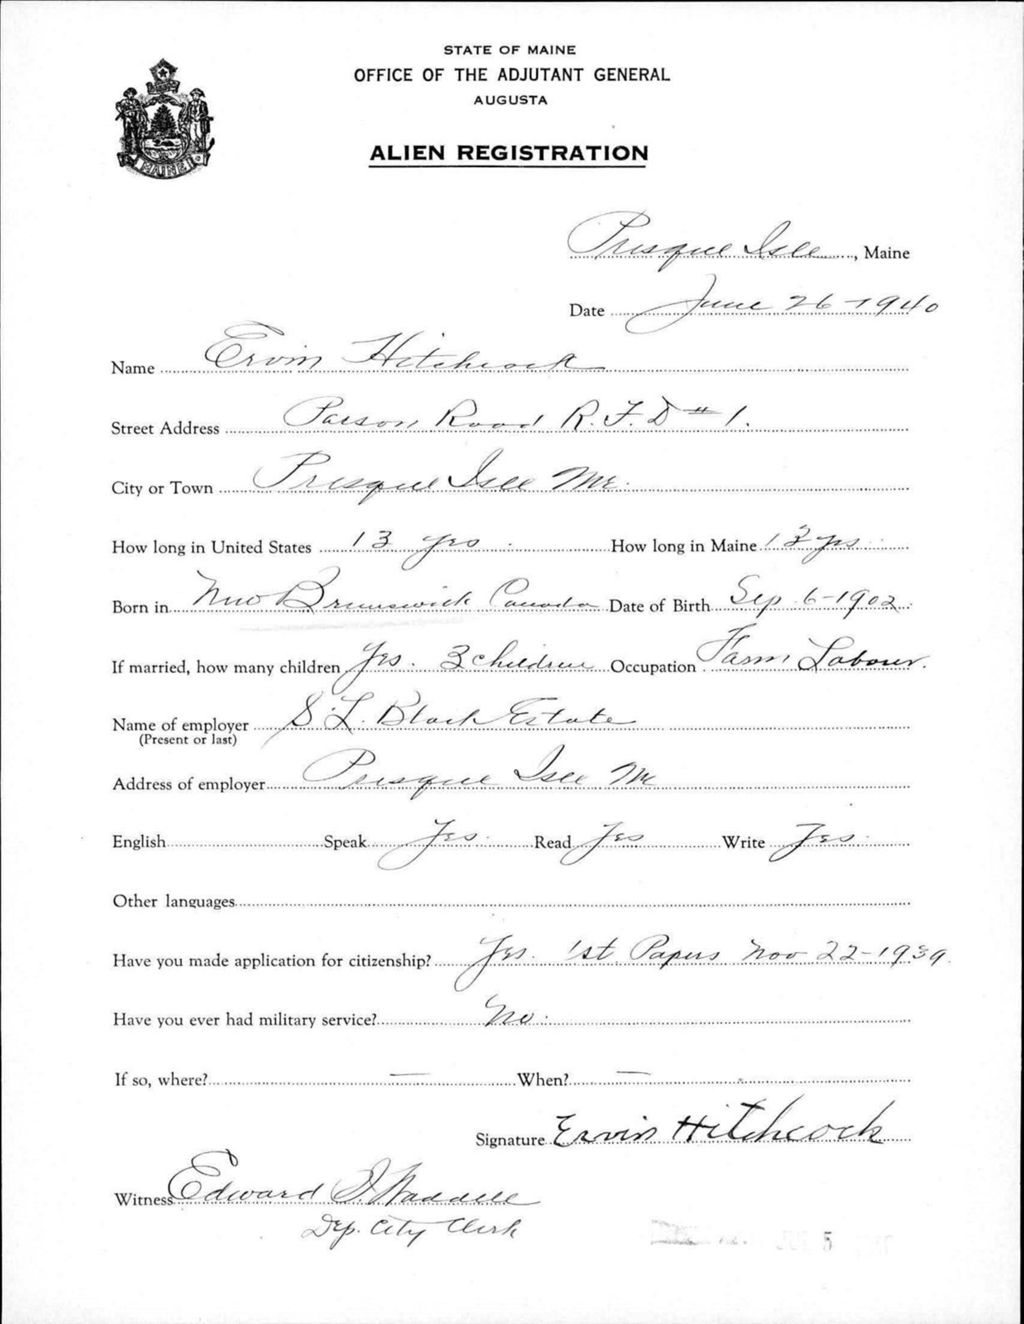 STATE OF MAINE
OFFICE OF THE ADJUTANT GENERAL
AUGUSTA
ALIEN REGISTRATION
MAINE
Presque Isle, Maine
Date June 26-1940
Name Ervin Hitchcock
Street Address Parson Road R.F.D #1.
City or Town Presque Isle Me.
How long in United States 13 yrs. How long in Maine 13 yrs.
Born in New Brunswick Canada Date of Birth Sep 6-1902
If married, how many children Yes. 3 children Occupation Farm Labour.
Name of employer S.L. Black Estate
(Present or last)
Address of employer Presque Isle Me
English Speak Yes. Read Yes Write Yes.
Other languages
Have you made application for citizenship? Yes. 1st Papers Nov 22-1939
Have you ever had military service? No.
If so, where? — When? —
Signature Ervin Hitchcock
Witness Edward I. Waddell
Dep. City Clerk